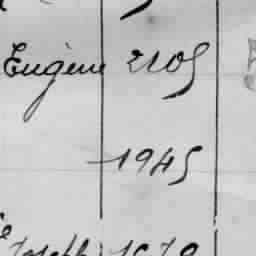 Eugène 2105
1945
Joseph